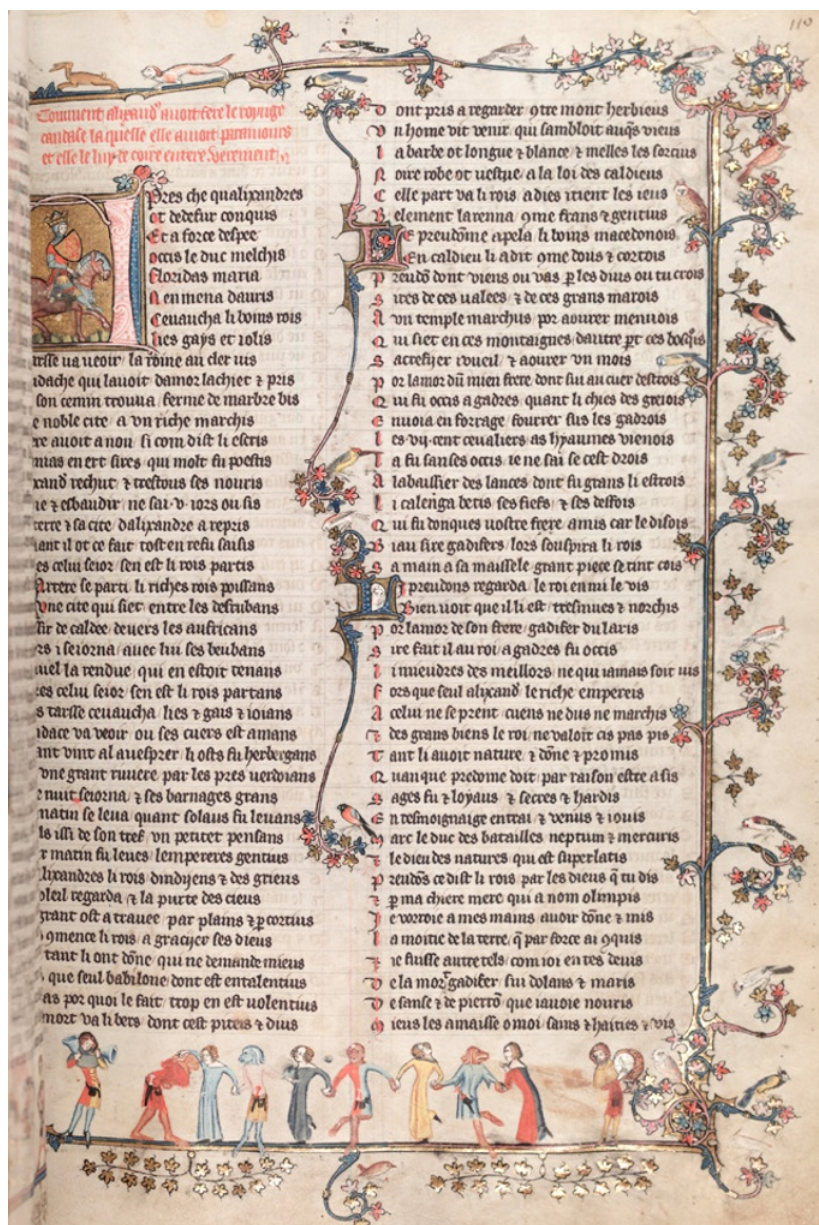 110
Comment alixand' avoit fere le voyage
candase la quelle elle avoit par amours
et elle le luy de coire entere
Apres che qualixandres
ot dedefur conquis
Et a force despee
occis le duc melchis
Floridas maria
A en mena dauris
Ceuaucha li boins rois
lies gays et iolis
tarsse va veoir la roine au cler vis
idache qui lauoit damor lachiet ⁊ pris
son cemin trouua ferme de marbre bis
e noble cite a vn riche marchis
re auoit a non si com dist li escris
nias en ert sires qui molt fu poestis
xand rechut ⁊ trestous ses nouris
ie ⁊ esbaudir ne sai .v. iors ou sis
terre ⁊ sa cite dalixandre a repris
iant il ot ce fait tost en refu saisis
es celui seior sen est li rois partis
Artere se parti li riches rois poissans
vne cite qui siet entre les desrubans
sir de caldee deuers les aufricans
rs i seiorna auec lui ses beubans
uel la rendue qui en estoit tenans
res celui seior sen est li rois partans
s tarsse ceuaucha lies ⁊ gais ⁊ ioians
idace va veoir ou ses cuers est amans
ant vint al auesprer li osts fu herbergans
vne grant riuiere par les pres uerdoians
e nuit seiorna ⁊ ses barnages grans
matin se leua quant solaus fu leuans
ls issi de son tref vn petitet pensans
r matin fu leues lempereres gentius
lixandres li rois dindijens ⁊ des griens
oleil regarda ⁊ la purte des cieus
grant ost a trauee par plains ⁊ p cortius
9mence li rois a gracijer ses dieus
tant li ont done qui ne demande mieus
s que seul babilone dont est entalentius
as por quoi le fait trop en est uolentius
mort va li bers dont cest pites ⁊ dius
D ont pris a regarder 9tre mont herbieus
V n home vit venir qui sambloit auqs vieus
L a barbe ot longue ⁊ blance ⁊ melles les sorcius
N oire robe ot uestue a la loi des caldieus
C elle part va li rois a dies itient les ieus
B element larenna 9me frans ⁊ gentius
Le preudome apela li boins macedonois
En caldieu li a dit 9me dous ⁊ cortois
P reudo dont viens ou vas p les dius ou tu crois
S ires de ces ualees ⁊ de ces grans marois
A vn temple marchus por aourer men uois
Q ui siet en ces montaignes dautre pt ces bosqs
S acrefijer i vueil ⁊ aourer vn mois
P or lamor du mien frere dont sui au cuer destrois
Q ui fu occis a gadres quant li chies des grejois
E nuoia en forrage fourrer sus les gadrois
L es .vij. cent ceualiers as hyaumes vienois
L a fu sanses occis ie ne sai se cest drois
A labaissier des lances dont fu grans li estrois
L i calenga betis ses fiefs ⁊ ses deffois
Q ui fu donques uostre frere amis car le disois
B iau sire gadifers lors souspira li rois
S a main a sa maissele grant piece se tint cois
Li preudons regarda le roi en mi le vis
Bien uoit que il li est tresmues ⁊ norchis
P or lamor de son frere gadifer du laris
S ire fait il au roi a gadres fu occis
L i mieudres des meillors ne qui iamais soit uis
F ors que seul alixand le riche empereis
A celui ne se prent cuens ne dus ne marchis
⁊ des grans biens le roi ne valoit cis pas pis
T ant li auoit nature ⁊ done ⁊ promis
Q uanque predome doit par raison estre asis
S ages fu ⁊ loyaus ⁊ secres ⁊ hardis
E n tesmoignaige entrai ⁊ venus ⁊ iouis
M arc le duc des batailles neptum ⁊ mercuris
⁊ le dieu des natures qui est superlatis
P reudos ce dist li rois par les dieus q tu dis
⁊ p ma chiere mere qui a nom olimpis
J e vorroie a mes mains auoir done ⁊ mis
L a moitie de la terre q par force ai 9quis
⁊ ie fuisse autre tels com ioi en tes deuis
D e la mort gadifer sui dolans ⁊ maris
D e sanse ⁊ de pierron que iauoie nouris
M ieus les amaisse o moi sains ⁊ haities ⁊ vis